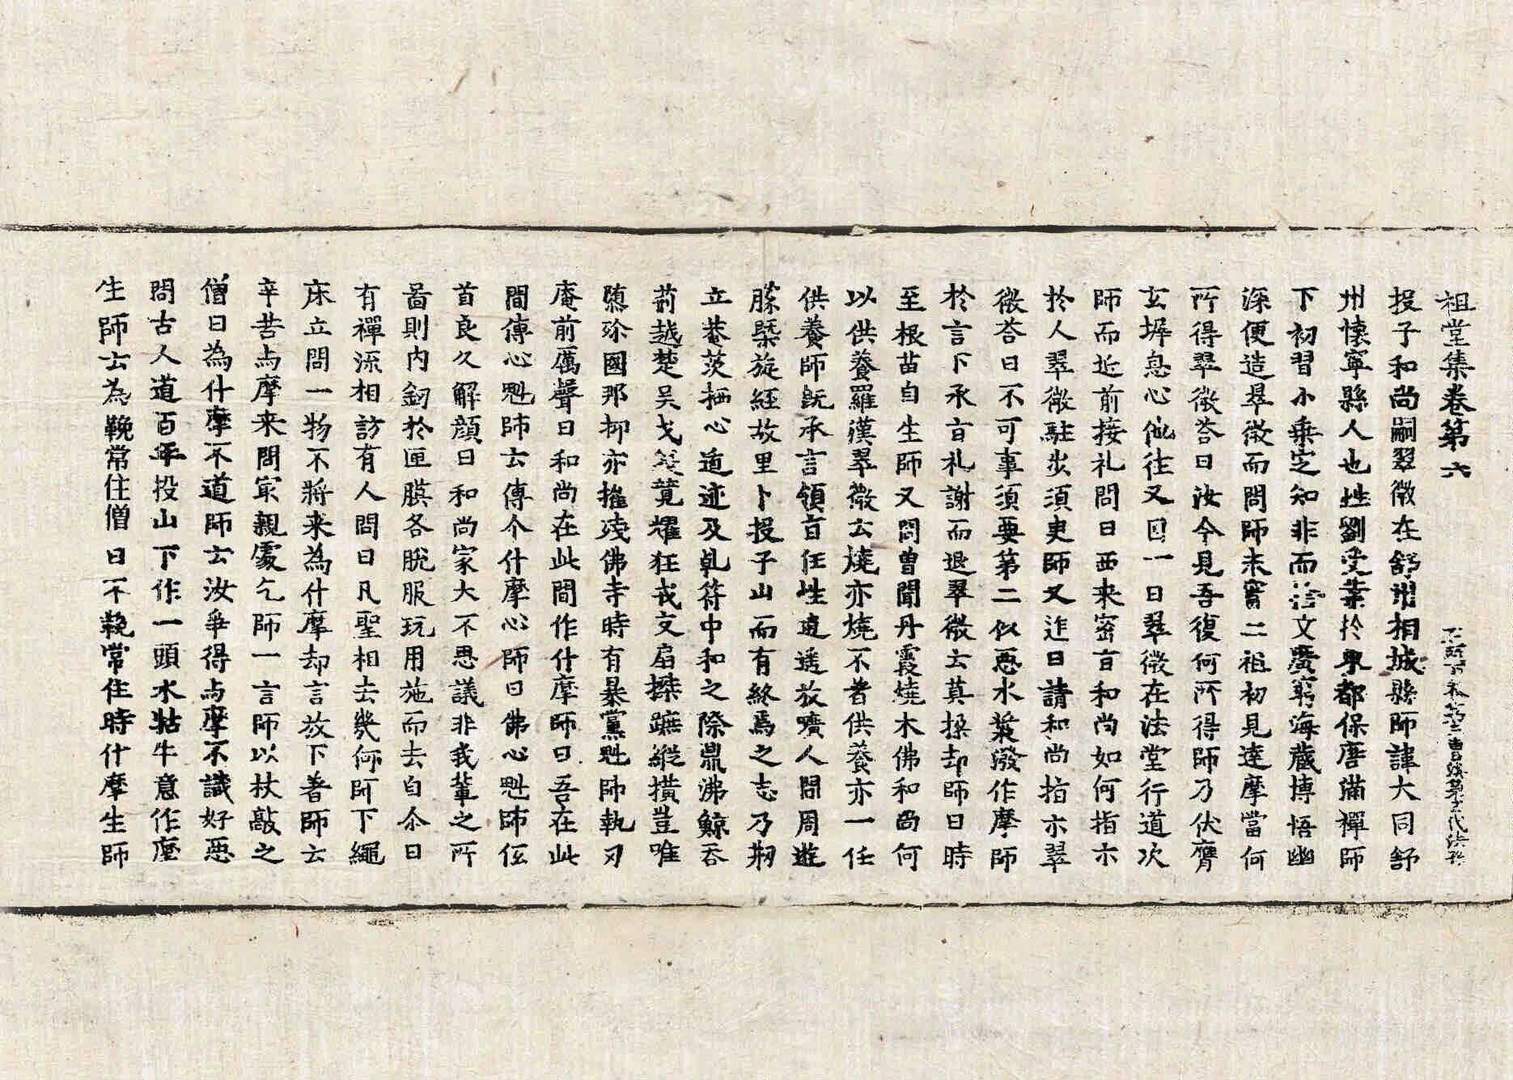 祖堂集卷第六 石頭下卷第三曹溪第六代法孫
投子和尚嗣翠微在舒州桐城縣師諱大同舒
州懷寧縣人也姓劉受業扵東都保唐滿禪師
下初習小乘定知非而 文廣窮海藏博悟幽
深便造翠微而問師未審二祖初見達摩當何
所得翠微荅曰汝今見吾復何所得師乃伏膺
玄墀息心他往又因一日翠微在法堂行道次
師而近前接礼問曰西来密旨和尚如何指示
扵人翠微駐步須臾師又進曰請和尚指示翠
微荅曰不可事須要第二似惡水漿潑作摩師
扵言下承旨礼謝而退翠微云莫探却師曰時
至根苗自生師又問曽聞丹霞燒木佛和尚何
以供養羅漢翠微云燒亦燒不著供養亦一任
供養師旣承言領旨任性逍遥放曠人間周遊
勝槩旋經故里卜投子山而有終焉之志乃剏
立菴茨栖心遁迹及乹符中和之際鼎沸鯨吞
荊越楚吴戈 競耀狂戎交扇 踨縱橫豈唯
隳殄國邦抑亦摧殘佛寺時有暴黨魁師執刃
庵前厲聲曰和尚在此間作什摩師曰吾在此
間傳心魁師云傳个什摩心師曰佛心魁師伍
首良久解顔曰和尚家大不思議非我輩之所
啚則内釰扵匣膜各脫服玩用施而去自尒曰
有禪流相訪有人問曰凡聖相去幾何師下繩
床立問一物不將来為什摩却言放下著師云
辛苦与摩来問㝡親處乞師一言師以杖敲之
僧曰為什摩不道師云汝争得与摩不識好惡
問古人道百年投山下作一頭水牯牛意作麼
生師云為鞔常住僧曰不鞔常住時什摩生師